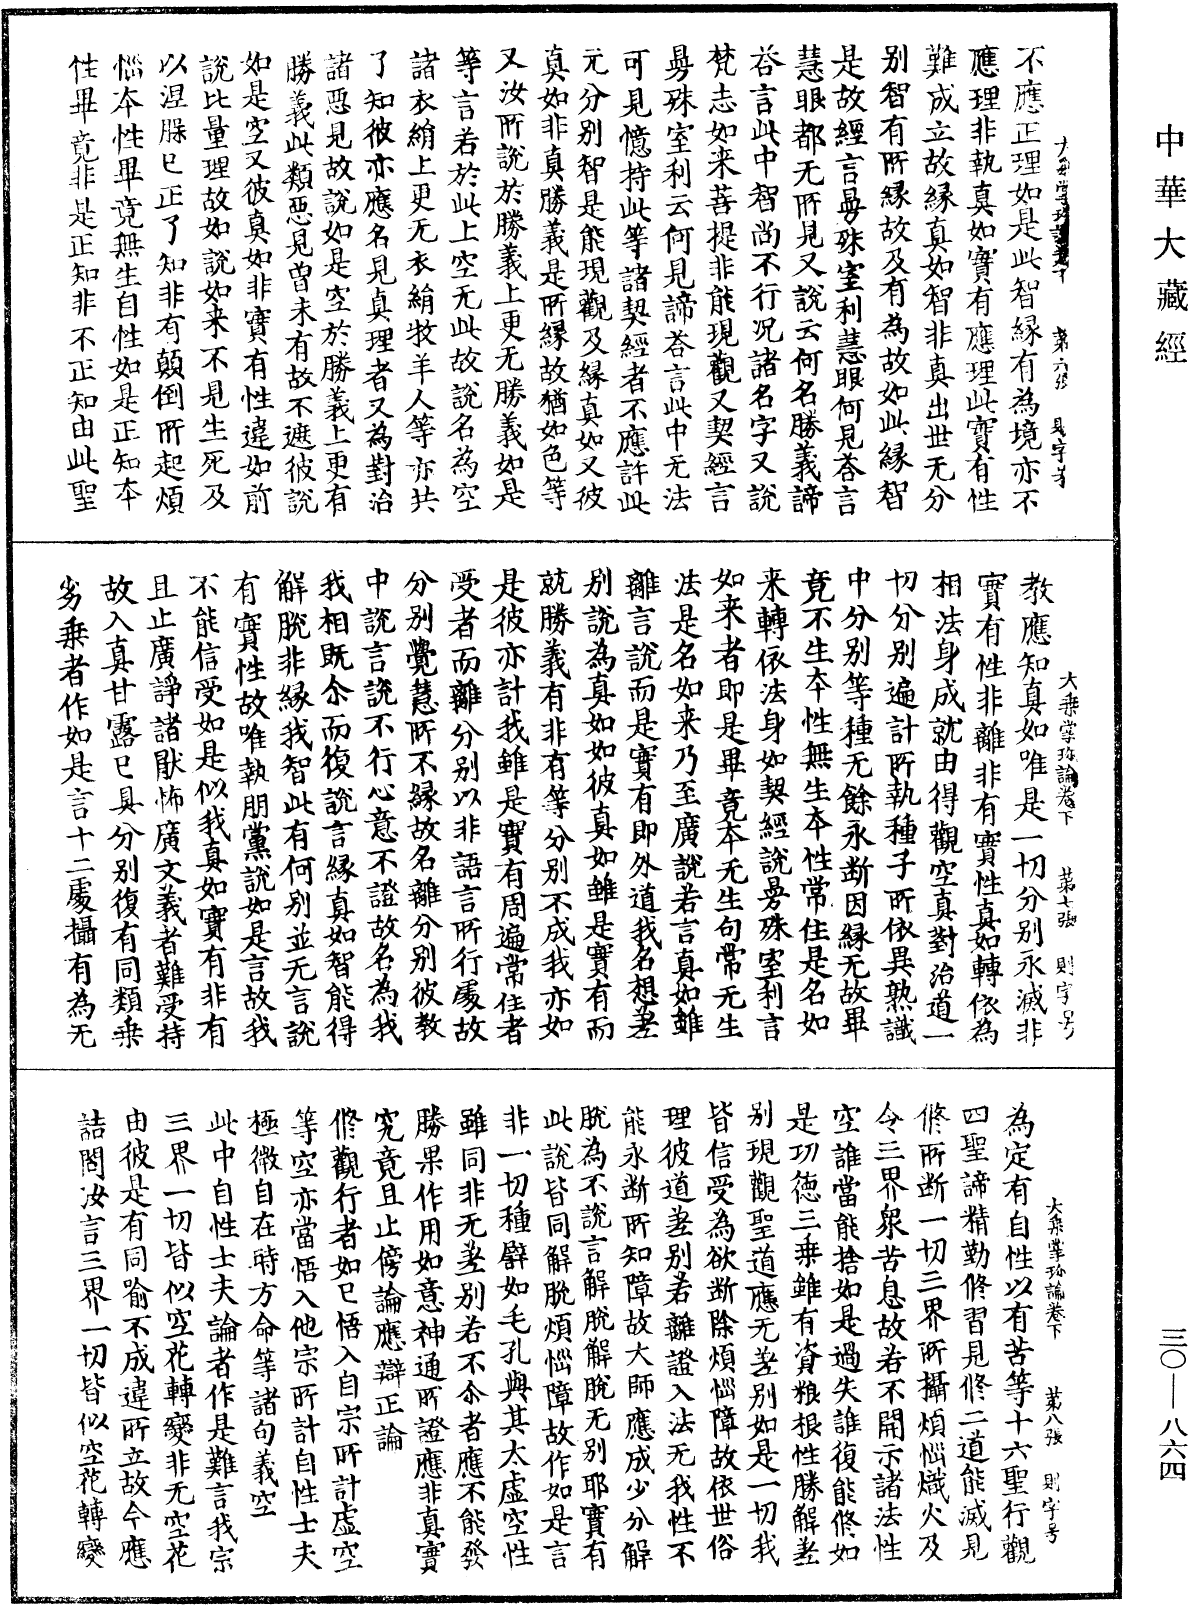 中華大藏經
三〇—八六四
大乘掌珍論卷下 第六張 則字号
不應正理如是此智緣有為境亦不
應理非執真如實有應理此實有性
難成立故緣真如智非真出世无分
別智有所緣故及有為故如此緣智
是故經言曼殊室利慧眼何見荅言
慧眼都无所見又說云何名勝義諦
荅言此中智尚不行況諸名字又說
梵志如来菩提非能現觀又契經言
曼殊室利云何見諦荅言此中无法
可見憶持此等諸契經者不應許此
元分別智是能現觀及緣真如又彼
真如非真勝義是所緣故猶如色等
又汝所說於勝義上更无勝義如是
等言若於此上空无此故說名為空
諸衣絹上更无衣絹牧羊人等亦共
了知彼亦應名見真理者又為對治
諸惡見故說如是空於勝義上更有
勝義此類惡見曾未有故不遮彼說
如是空又彼真如非實有性違如前
說比量理故如說如来不見生死及
以涅槃已正了知非有顛倒所起煩
惱本性畢竟無生自性如是正知本
性畢竟非是正知非不正知由此聖
大乘掌珍論卷下 第七張 則字号
教應知真如唯是一切分別永滅非
實有性非離非有實性真如轉依為
相法身成就由得觀空真對治道一
切分別遍計所執種子所依異熟識
中分別等種无餘永斷因緣无故畢
竟不生本性無生本性常住是名如
来轉依法身如契經說曼殊室利言
如来者即是畢竟本无生句常无生
法是名如来乃至廣說若言真如雖
離言說而是實有即外道我名想差
別說為真如如彼真如雖是實有而
就勝義有非有等分別不成我亦如
是彼亦計我雖是實有周遍常住者
受者而離分別以非語言所行處故
分別覺慧所不緣故名離分別彼教
中說言說不行心意不證故名為我
我相既尒而復說言緣真如智能得
解脫非緣我智此有何別並无言說
有實性故唯執朋黨說如是言故我
不能信受如是似我真如實有非有
且止廣諍諸猒怖廣文義者難受持
故入真甘露已具分別復有同類乘
劣乘者作如是言十二處攝有為无
大乘掌珍論卷下 第八張 則字号
為定有自性以有苦等十六聖行觀
四聖諦精勤修習見修二道能滅見
修所斷一切三界所攝煩惱熾火及
令三界衆苦息故若不開示諸法性
空誰當能捨如是過失誰復能修如
是功德三乘雖有資粮根性勝解差
別現觀聖道應无差別如是一切我
皆信受為欲斷除煩惱障故依世俗
理彼道差別若離證入法无我性不
能永斷所知障故大師應成少分解
脫為不說言解脫解脫无別耶實有
此說皆同解脫煩惱障故作如是言
非一切種譬如毛孔與其太虛空性
雖同非无差別若不尒者應不能發
勝果作用如意神通所證應非真實
究竟且止傍論應辯正論
修觀行者如已悟入自宗所計虛空
等空亦當悟入他宗所計自性士夫
極微自在時方命等諸句義空
此中自性士夫論者作是難言我宗
三界一切皆似空花轉變非无空花
由彼是有同喻不成違所立故今應
詰問汝言三界一切皆似空花轉變